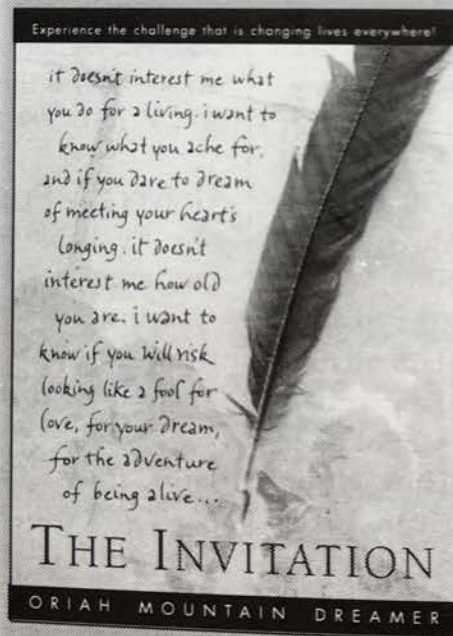 Experience the challenge that is changing lives everywhere!
it doesn't interest me what
you do for a living. i want to
know what you ache for,
and if you dare to dream
of meeting your heart's
longing. it doesn't
interest me how old
you are. i want to
know if you will risk
looking like a fool for
love, for your dream,
for the adventure
of being alive...
THE INVITATION
ORIAH MOUNTAIN DREAMER